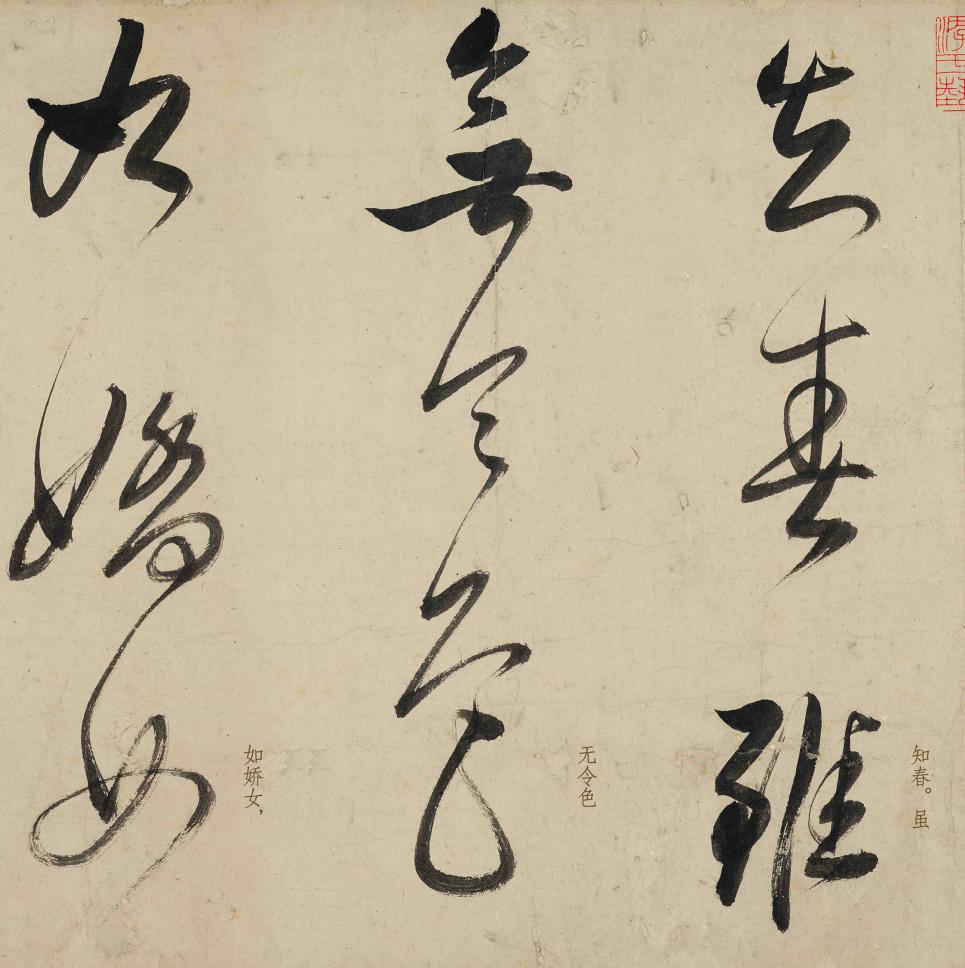 知春。虽
知春雖
无令色
無令色
如娇女，
如嬌女